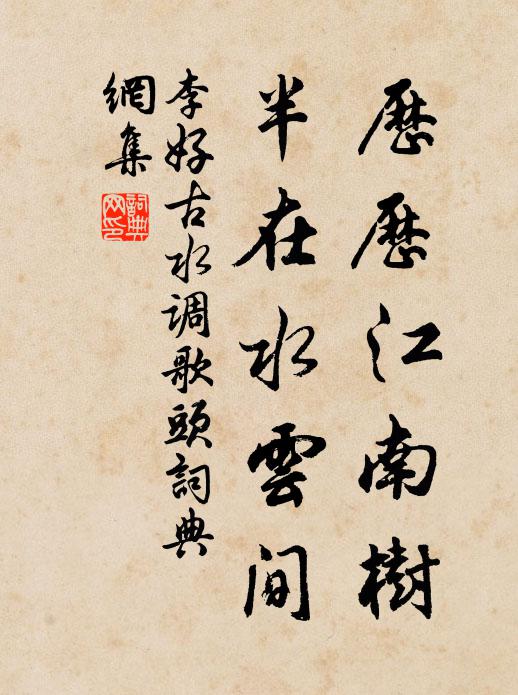 歷歷江南樹
半在水雲間
李好古水调歌頭詞典
網集
詞典
网印